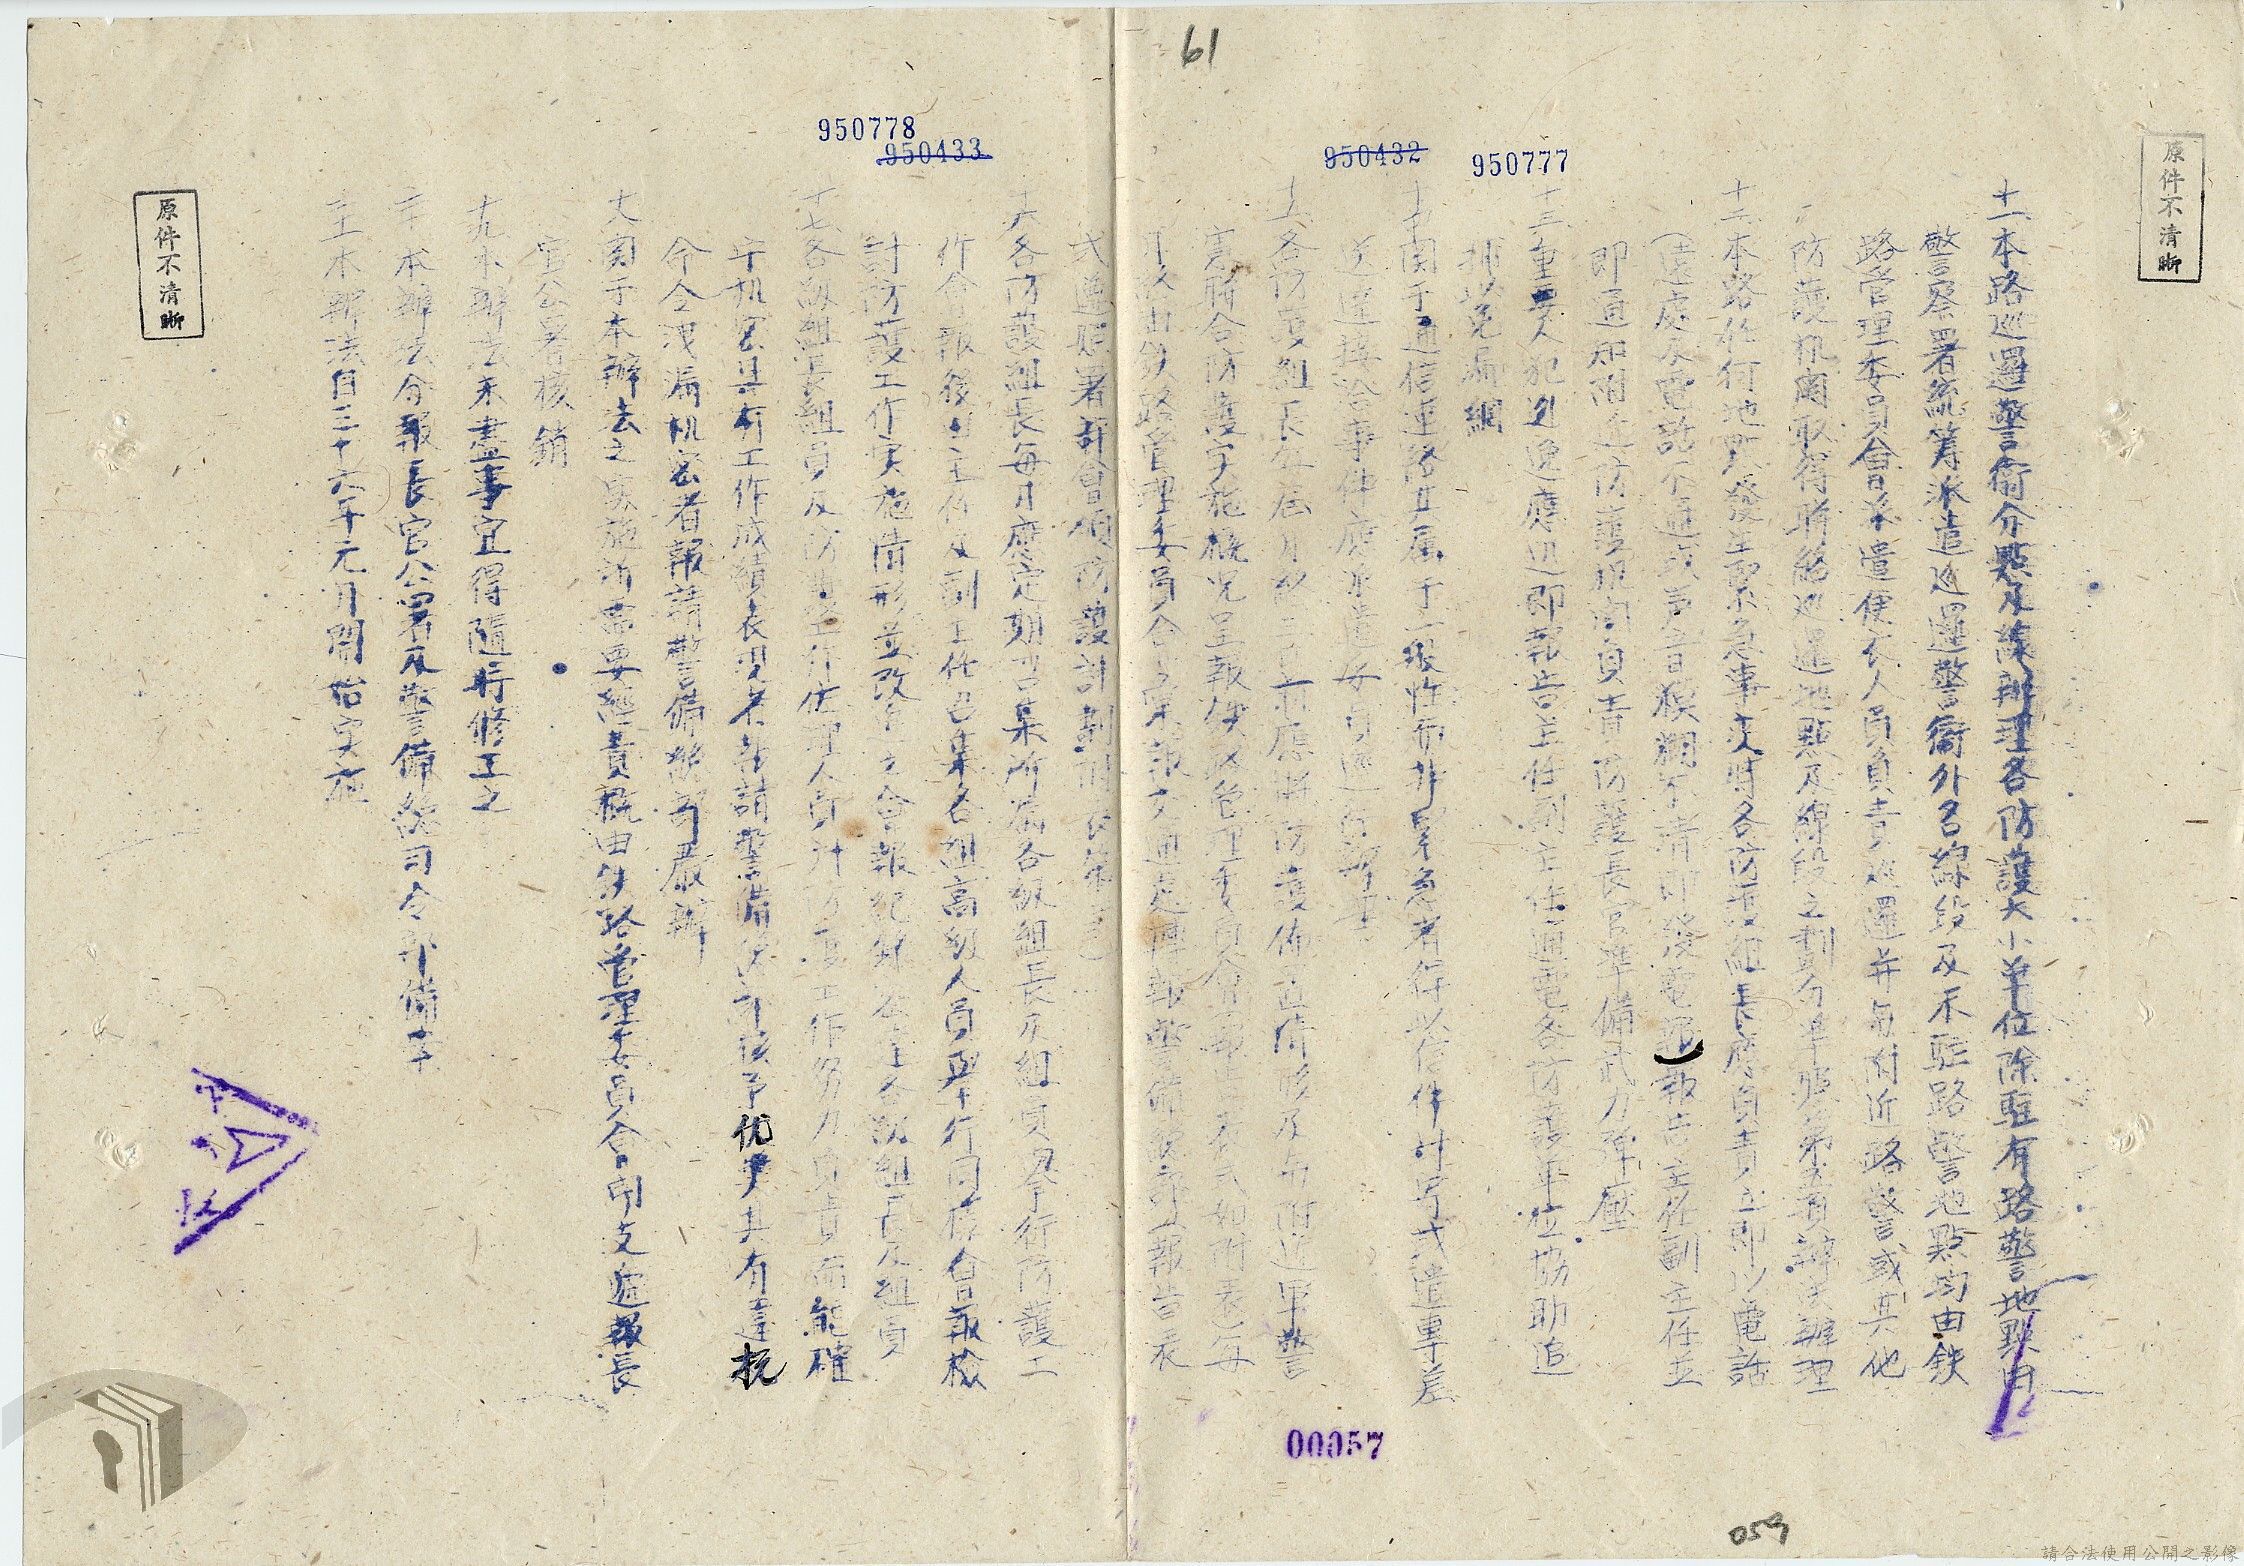 61
950777
950432
950778
950433
原件不清晰
十一本路巡邏警衛分點及線辦理各防護大小單位除駐有路警地點由
警察署統籌派遣巡邏警衛外各線段及不駐路警地點均由鉄
路管理委員會派遣便衣人員負責巡邏并與附近路警或其他
防護机関取得聯絡巡邏地點及線段之劃分準照第五項辦法辦理
十二本路任何地點發生緊急事变時各防護組長應負責立即以電話
(遠處及電話不通或声音模糊不清即發電報)報告主任副主任並
即通知附近防護机関負責防護長官準備武力彈壓
十三重要人犯逃逸應迅即報告主任副主任通電各防護單位協助追
捕以免漏網
十四関于通信連絡其属于一般性而非緊急者得以信件計写或遣車差
送達接洽事件應派遣
十五各防護組長每屆月
應將防護佈置情形及與附近軍警
憲聯合防護实施概况呈報鉄路管理委員會
表式如附表)每
月終由鉄路管理委員会彙報交通處轉報警備總部(報告表
式遵照署訂會頒防護計劃附表
十六各防護組長每月應定期召集所屬各級組長及組員舉行防護工
作會報後由主任及副主任召集各組高級人員舉行同樣會報檢
討防護工作实施情形並改
之會報紀錄
各級組長及組員
十七各級組長組員及防護工作住部人員對防護工作努力負責而能確
守机密具有工作成績表現者報請警備總部核予优奖其有違抗
命令洩漏机密者報請警備總部嚴辦
十八関于本辦法之实施所需要經費概由鉄路管理委員会開支逕報長
官公署核銷
十九本辦法未盡事宜得隨時修正之
二十本辦法分報長官公署及警備總司令部備案
二十一本辦法自三十六年元月開始实施
原件不清晰
00057
059
請合法使用公開之影像